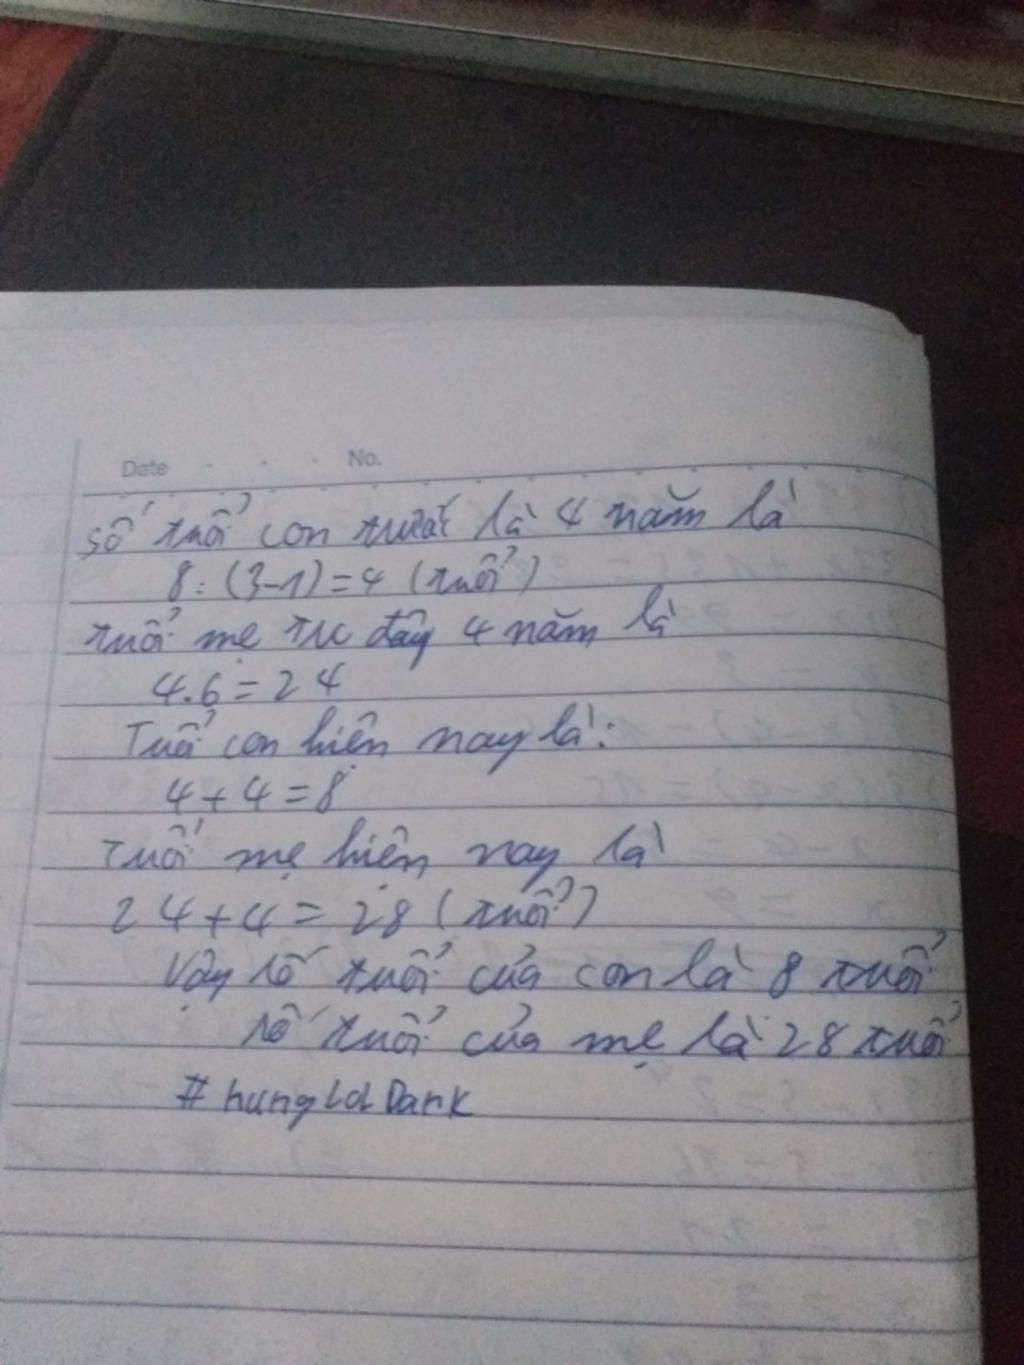 Date No.
số tuổi con trước là 4 năm là
8: (3-1)=4 (tuổi)
tuổi mẹ trc đây 4 năm là
4.6=24
Tuổi con hiện nay là:
4+4=8
Tuổi mẹ hiện nay là
24+4=28 (tuổi)
Vậy số tuổi của con là 8 tuổi
số tuổi của mẹ là 28 tuổi